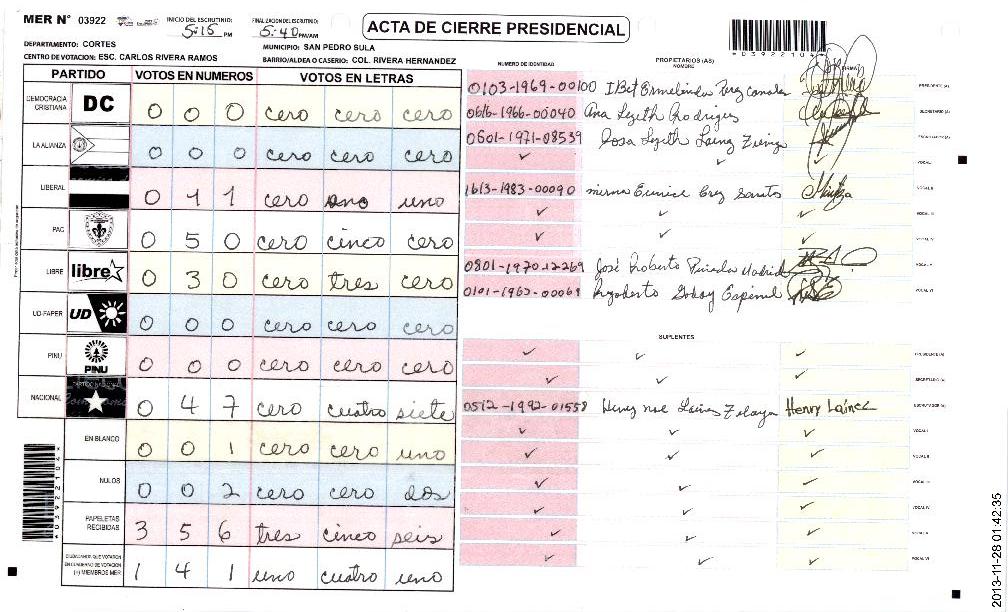 MER N° 03922
INICIO DEL ESCRUTINIO: 5:15 PM
FINALIZACION DEL ESCRUTINIO: 5:40 PM/AM
ACTA DE CIERRE PRESIDENCIAL
*03922104*
DEPARTAMENTO: CORTES
MUNICIPIO: SAN PEDRO SULA
CENTRO DE VOTACION: ESC. CARLOS RIVERA RAMOS
BARRIO/ALDEA O CASERIO: COL. RIVERA HERNANDEZ
PARTIDO VOTOS EN NUMEROS VOTOS EN LETRAS
DEMOCRACIA CRISTIANA DC 0 0 0 cero cero cero
LA ALIANZA 0 0 0 cero cero cero
LIBERAL 0 1 1 cero uno uno
PAC 0 5 0 cero cinco cero
LIBRE libre 0 3 0 cero tres cero
UD-FAPER UD 0 0 0 cero cero cero
PINU PINU 0 0 0 cero cero cero
NACIONAL 0 4 7 cero cuatro siete
EN BLANCO 0 0 1 cero cero uno
NULOS 0 0 2 cero cero dos
PAPELETAS RECIBIDAS 3 5 6 tres cinco seis
CIUDADANOS QUE VOTARON EN CUADERNO DE VOTACION (+) MIEMBROS MER 1 4 1 uno cuatro uno
NUMERO DE IDENTIDAD PROPIETARIOS (AS) NOMBRE
0103-1969-00100 PRESIDENTE (A)
0616-1966-00040 Ana Lizeth Rodriguez SECRETARIO (A)
0801-1971-08539 Rosa Lizeth Lainez ESCRUTADOR (A)
VOCAL I
1613-1983-00090 mirma Eunice Cruz Santos VOCAL II
VOCAL III
VOCAL IV
0801-1970-12269 José Roberto Pineda Madrid VOCAL V
0101-1963-00069 Rigoberto Godoy Espinal VOCAL VI
SUPLENTES
PRESIDENTE (A)
SECRETARIO (A)
0512-1992-01558 Henry Noe Lainez Zelaya Henry Laínez ESCRUTADOR (A)
VOCAL I
VOCAL II
VOCAL III
VOCAL IV
VOCAL V
VOCAL VI
*03922104*
2013-11-28 01:42:35